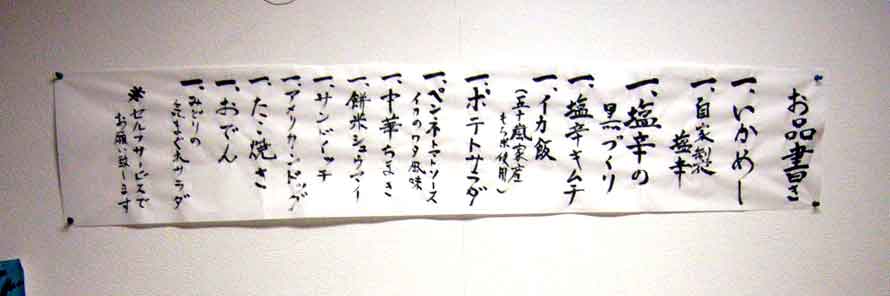 お品書き
一、いかめし
一、自家製
塩辛
一、塩辛の
黒づくり
一、塩辛キムチ
一、イカ飯
(五十嵐家産
もち米使用)
一、ポテトサラダ
一、ペンネトマトソース
イカのワタ風味
一、中華ちまき
一、餅米シュウマイ
一、サンドイッチ
一、アメリカンドッグ
一、たこ焼き
一、おでん
一、みどりの
サラダ
※セルフサービスで
お願い致します